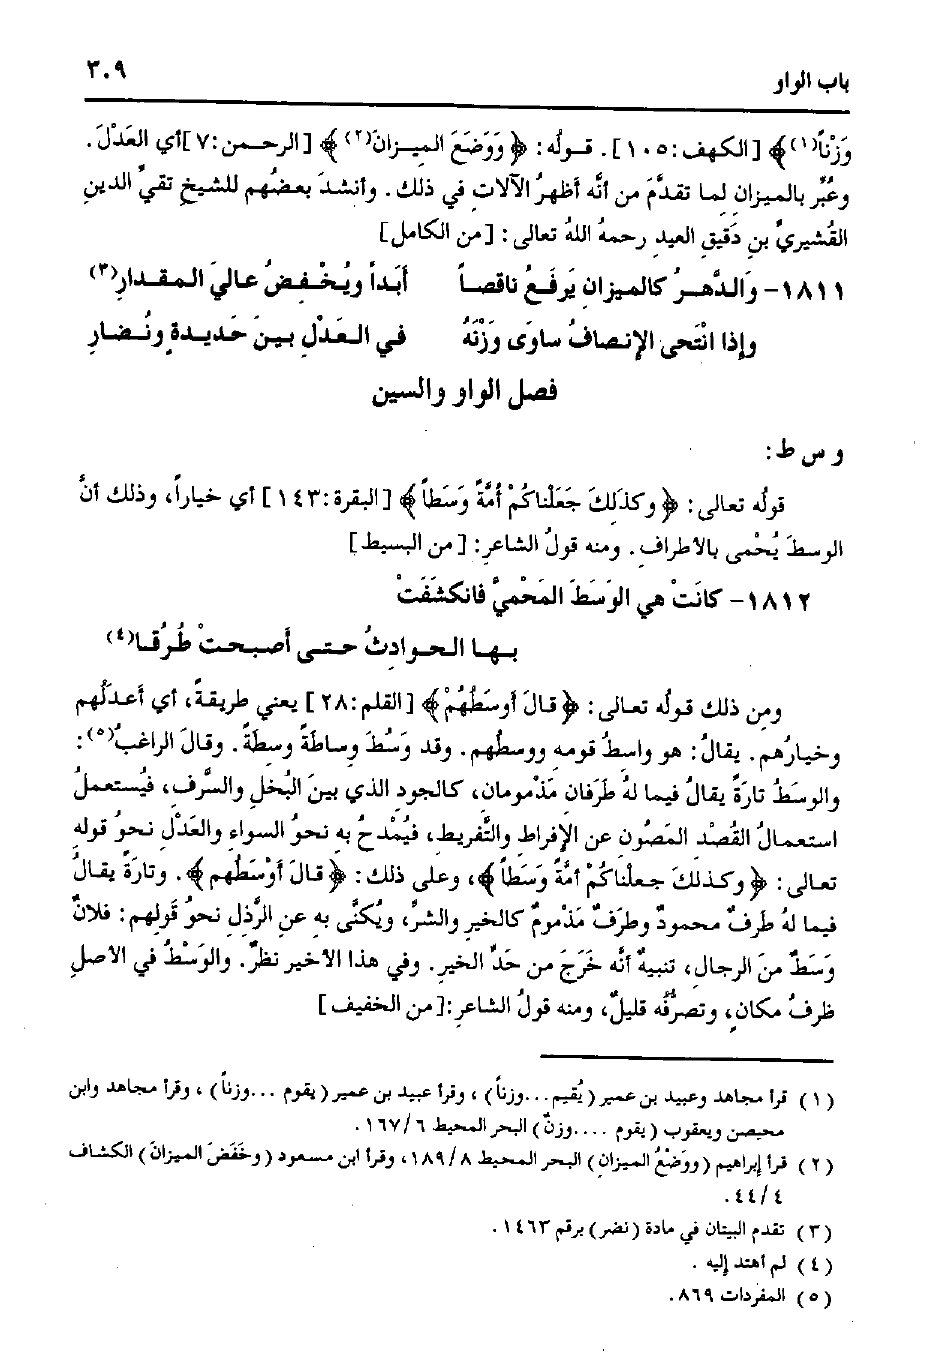 باب الواو ٣٠٩
وَزْناً(١)﴾ [الكهف:١٠٥]. قوله: ﴿وَوَضَعَ الميزانَ(٢)﴾ [الرحمن:٧]أي العَدْلَ.
وعُبِّر بالميزان لما تقدَّمَ من أنَّه أظهرُ الآلات في ذلك. وأنشدَ بعضُهم للشيخِ تقيِّ الدينِ
القُشيريِّ بنِ دَقيقِ العيدِ رحمهُ اللهُ تعالى: [من الكامل]
١٨١١- وَالدَّهرُ كالميزانِ يَرفَعُ ناقصاً أبَداً ويُخْفِضُ عاليَ المقدارِ(٣)
وإذا انْتَحى الإنصافُ ساوَى وَزْنَهُ في العَدْلِ بينَ حَديدةٍ ونُضارِ
فصل الواو والسين
و س ط:
قولُه تعالى: ﴿وكذَلِكَ جَعَلْناكُمْ أُمَّةً وَسَطاً﴾ [البقرة:١٤٣] أي خياراً، وذلك أنَّ
الوسطَ يُحْمى بالأطرافِ. ومنه قولُ الشاعرِ: [من البسيط]
١٨١٢- كانَتْ هي الوَسَطَ المَحْميَّ فانكشَفَتْ
بها الحوادِثُ حتى أصبحتْ طُرُقا(٤)
ومن ذلك قولُه تعالى: ﴿قالَ أوسَطُهُمْ﴾ [القلم:٢٨] يعني طريقةً، أي أعدَلُهم
وخيارُهم. يقالُ: هو واسطُ قومه ووسطُهم. وقد وَسُطَ وساطَةً وسِطَةً. وقالَ الراغبُ(٥):
والوسَطُ تارَةً يقالُ فيما لهُ طَرَفان مَذْمومان، كالجود الذي بينَ البُخلِ والسَّرفِ، فيُستعملُ
استعمالُ القَصْد المَصُون عن الإفراط والتَّفريط، فيُمْدحُ به نحوُ السواءِ والعَدْلِ نحوُ قوله
تعالى: ﴿وكذلكَ جعلْناكُمْ أمَّةً وَسَطاً﴾، وعلى ذلك: ﴿قالَ أوْسَطُهم﴾. وتارَةً يقالُ
فيما لهُ طَرفٌ محمودٌ وطرَفٌ مَذْمومٌ كالخيرِ والشرِّ، ويُكنَّى به عنِ الرَّذلِ نحوُ قَولهم: فلانٌ
وَسَطٌ منَ الرجالِ، تنبيهٌ أنَّه خَرَجَ من حَدِّ الخيرِ. وفي هذا الأخيرِ نظرٌ. والوَسْطُ في الأصلِ
ظرفُ مكانٍ، وتصرُّفُه قليلٌ، ومنه قولُ الشاعرِ:[من الخفيف]
(١) قرأ مجاهد وعبيد بن عمير (يُقيم...وزناً) ، وقرأ عبيد بن عمير (يقوم ...وزناً) ، وقرأ مجاهد وابن
محيصن ويعقوب (يقوم ....وزنٌ) البحر المحيط ١٦٧/٦.
(٢) قرأ إبراهيم (ووَضْعُ الميزانِ) البحر المحيط ١٨٩/٨، وقرأ ابن مسعود (وخَفَضَ الميزانَ) الكشاف
٤٤/٤.
(٣) تقدم البيتان في مادة (نضر) برقم ١٤٦٣.
(٤) لم أهتد إليه .
(٥) المفردات ٨٦٩.